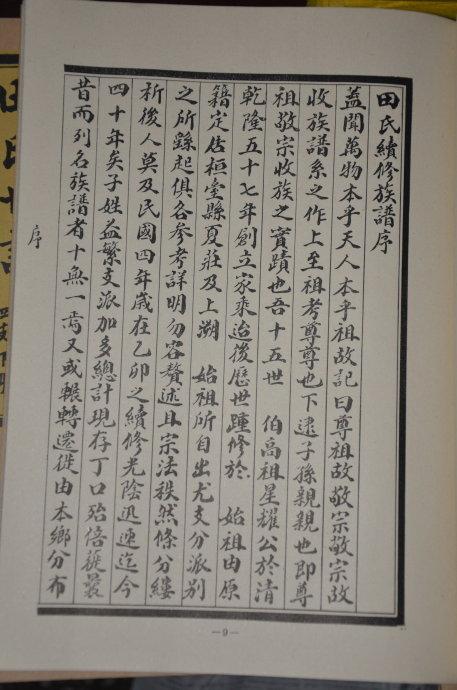 田氏續修族譜序
蓋聞萬物本乎天人本乎祖故記曰尊祖故敬宗敬宗故
收族譜系之作上至祖考尊尊也下逮子孫親親也即尊
祖敬宗收族之實蹟也吾十五世 伯高祖星耀公於清
乾隆五十七年創立家乘迨後歷世踵修於 始祖由原
籍定居桓臺縣夏莊及上溯 始祖所自出尤支分派別
之所繇起俱各参考詳明勿容贅述且宗法秩然條分縷
析後人莫及民國四年歲在乙卯之續修光陰迅速迄今
四十年矣子姓益繁支派加多總計現存丁口殆倍蓰曩
昔而列名族譜者十無一焉又或輾轉遷徙由本鄉分布
序
—9—
田氏